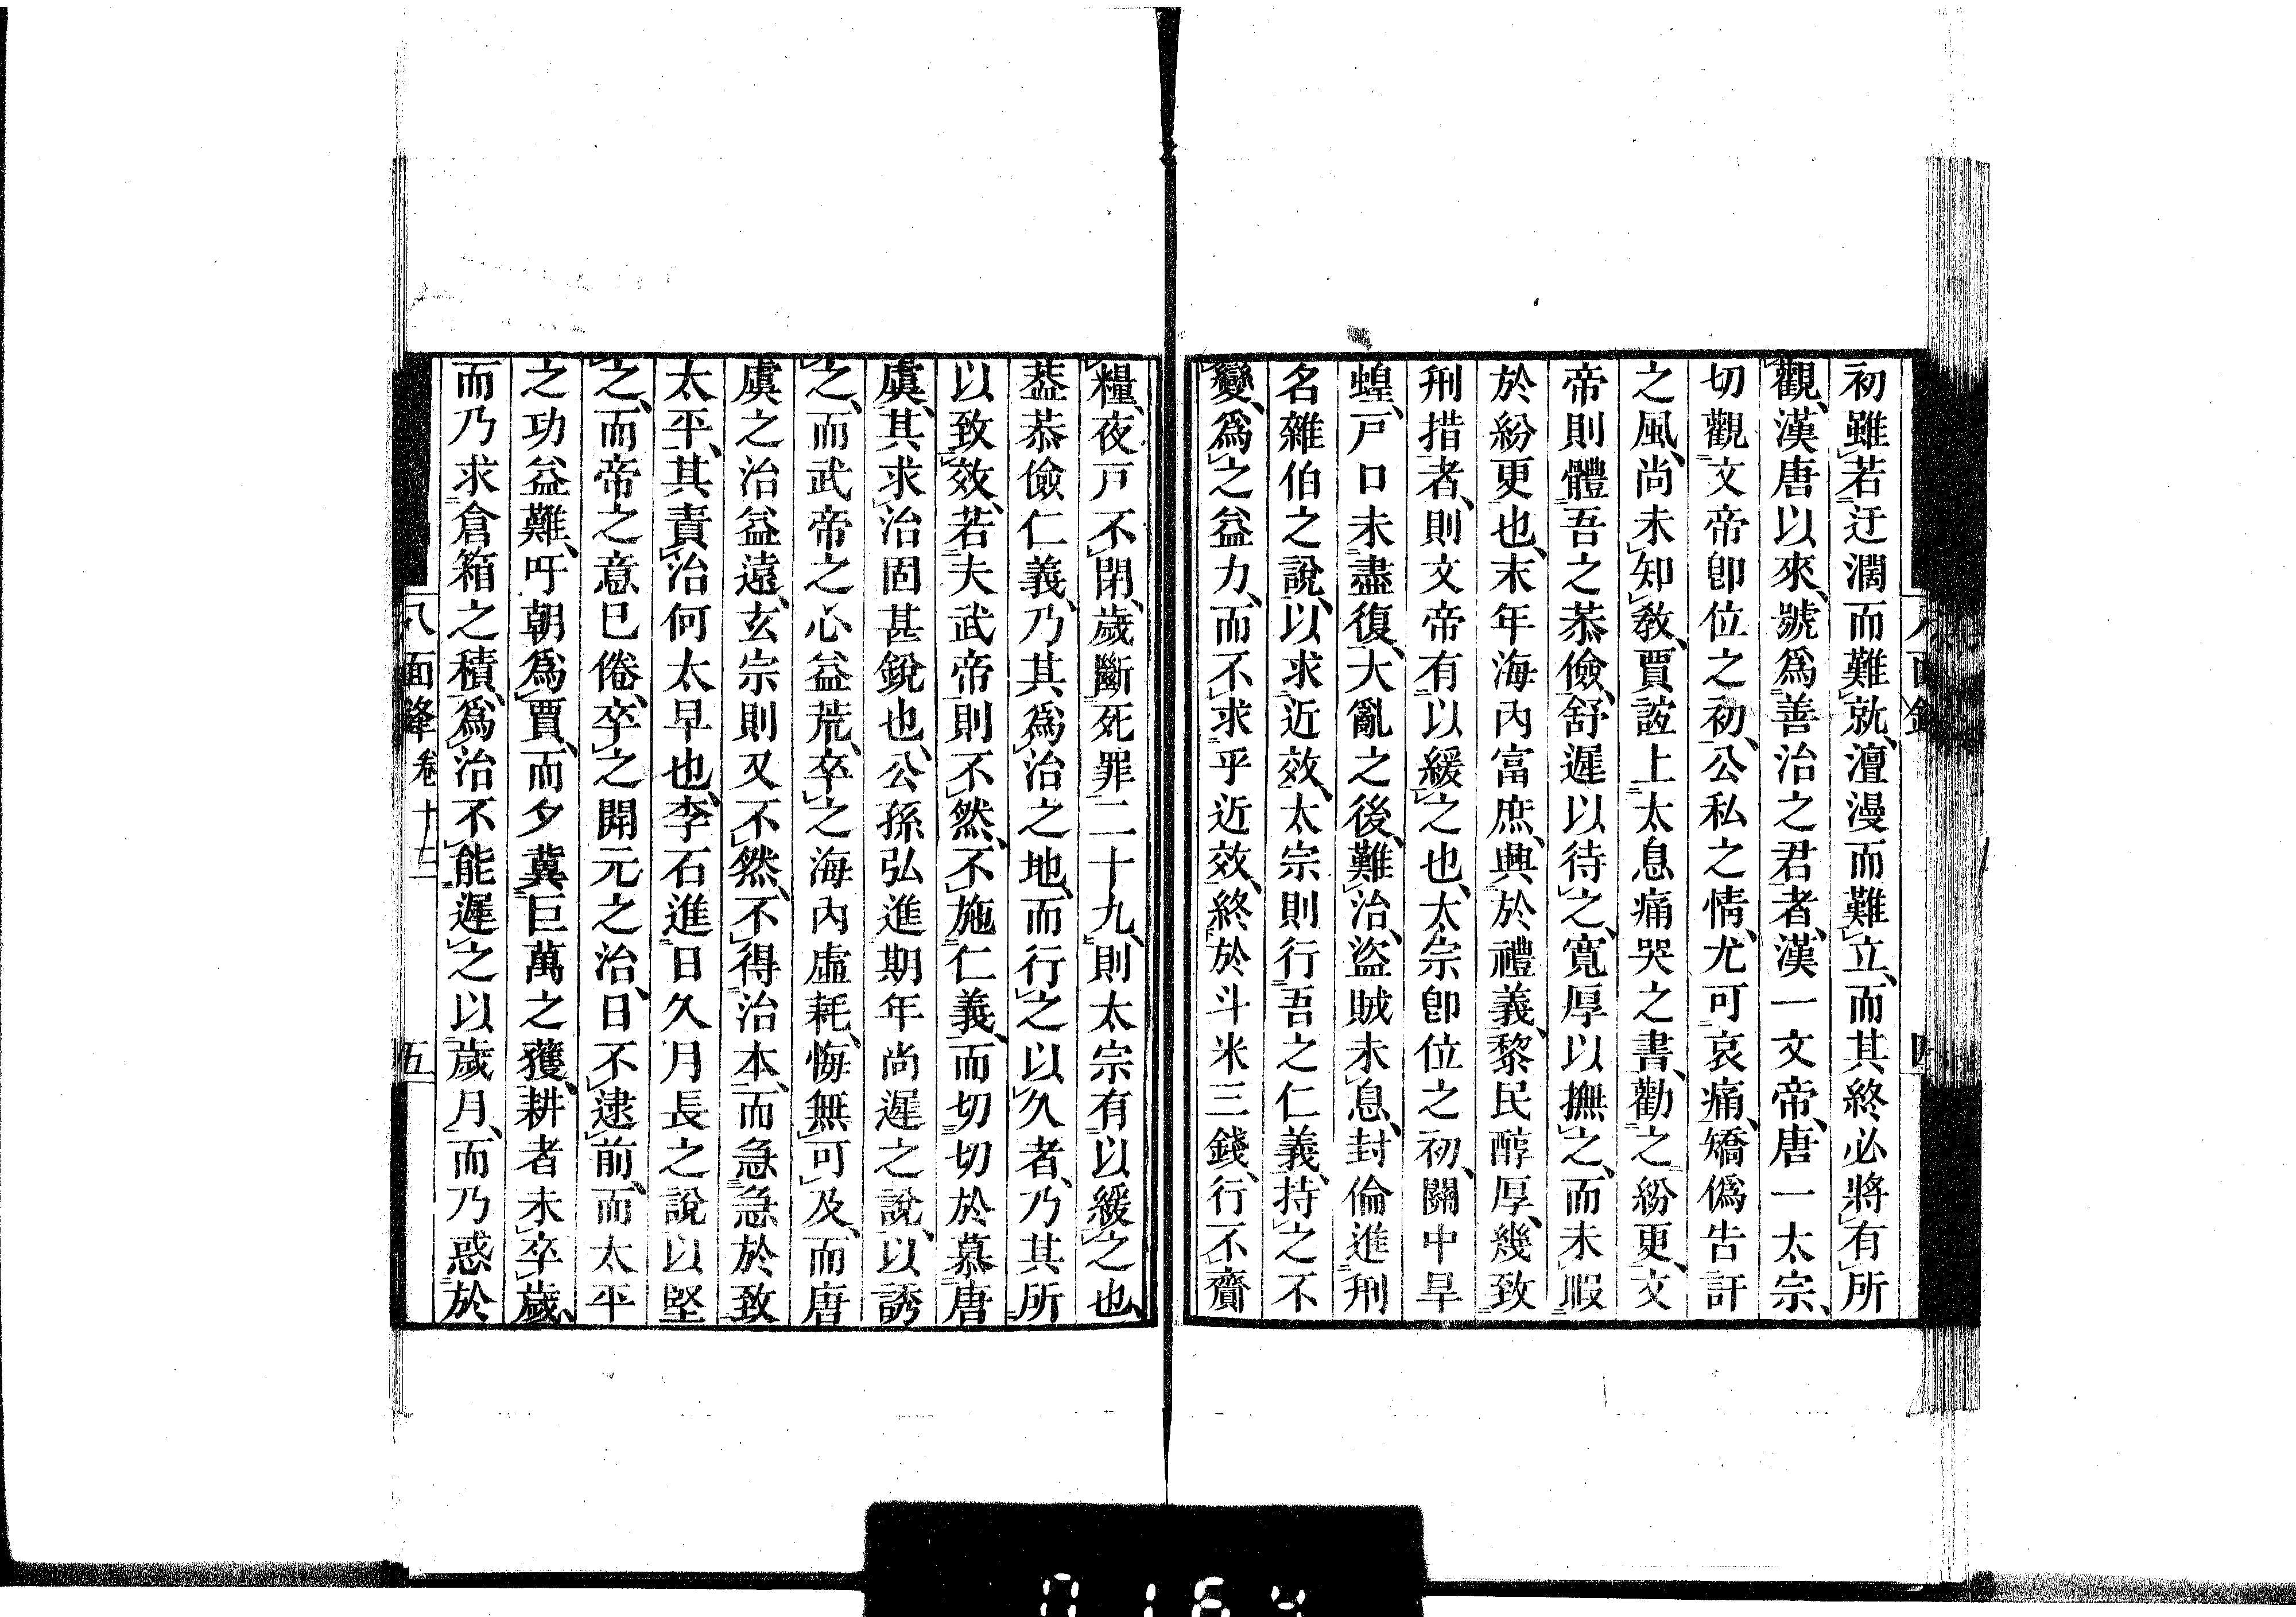 初雖若迂濶而難就、澶漫而難立、而其終必將有所
觀、漢唐以來、號爲善治之君者、漢一文帝、唐一太宗、
切觀文帝卽位之初、公私之情、尤可哀痛、矯僞告訐
之風、尚未知敎、賈誼上太息痛哭之書、勸之紛更、文
帝則體吾之恭儉、舒遲以待之、寬厚以撫之、而未暇
於紛更也、末年海內富庶、興於禮義、黎民醇厚、幾致
刑措者、則文帝有以緩之也、太宗卽位之初、關中旱
蝗、戸口未盡復、大亂之後、難治、盜賊未息、封倫進刑
名雜伯之說、以求近效、太宗則行吾之仁義、持之不
變、爲之益力、而不求乎近效、終於斗米三錢、行不齎
糧、夜戸不閉、歲斷死罪二十九、則太宗有以緩之也、
葢恭儉仁義、乃其爲治之地、而行之以久者、乃其所
以致效、若夫武帝則不然、不施仁義、而切切於慕唐
虞、其求治固甚銳也、公孫弘進期年尚遲之說、以誘
之、而武帝之心益荒、卒之海內虛耗、悔無可及、而唐
虞之治益遠、玄宗則又不然、不得治本、而急急於致
太平、其責治何太早也、李石進日久月長之說以堅
之、而帝之意已倦、卒之開元之治、日不逮前、而太平
之功益難、吁朝爲賈、而夕冀巨萬之獲、耕者未卒歲、
而乃求倉箱之積、爲治不能遲之以歲月、而乃惑於
八面鋒 卷十二 五
0164